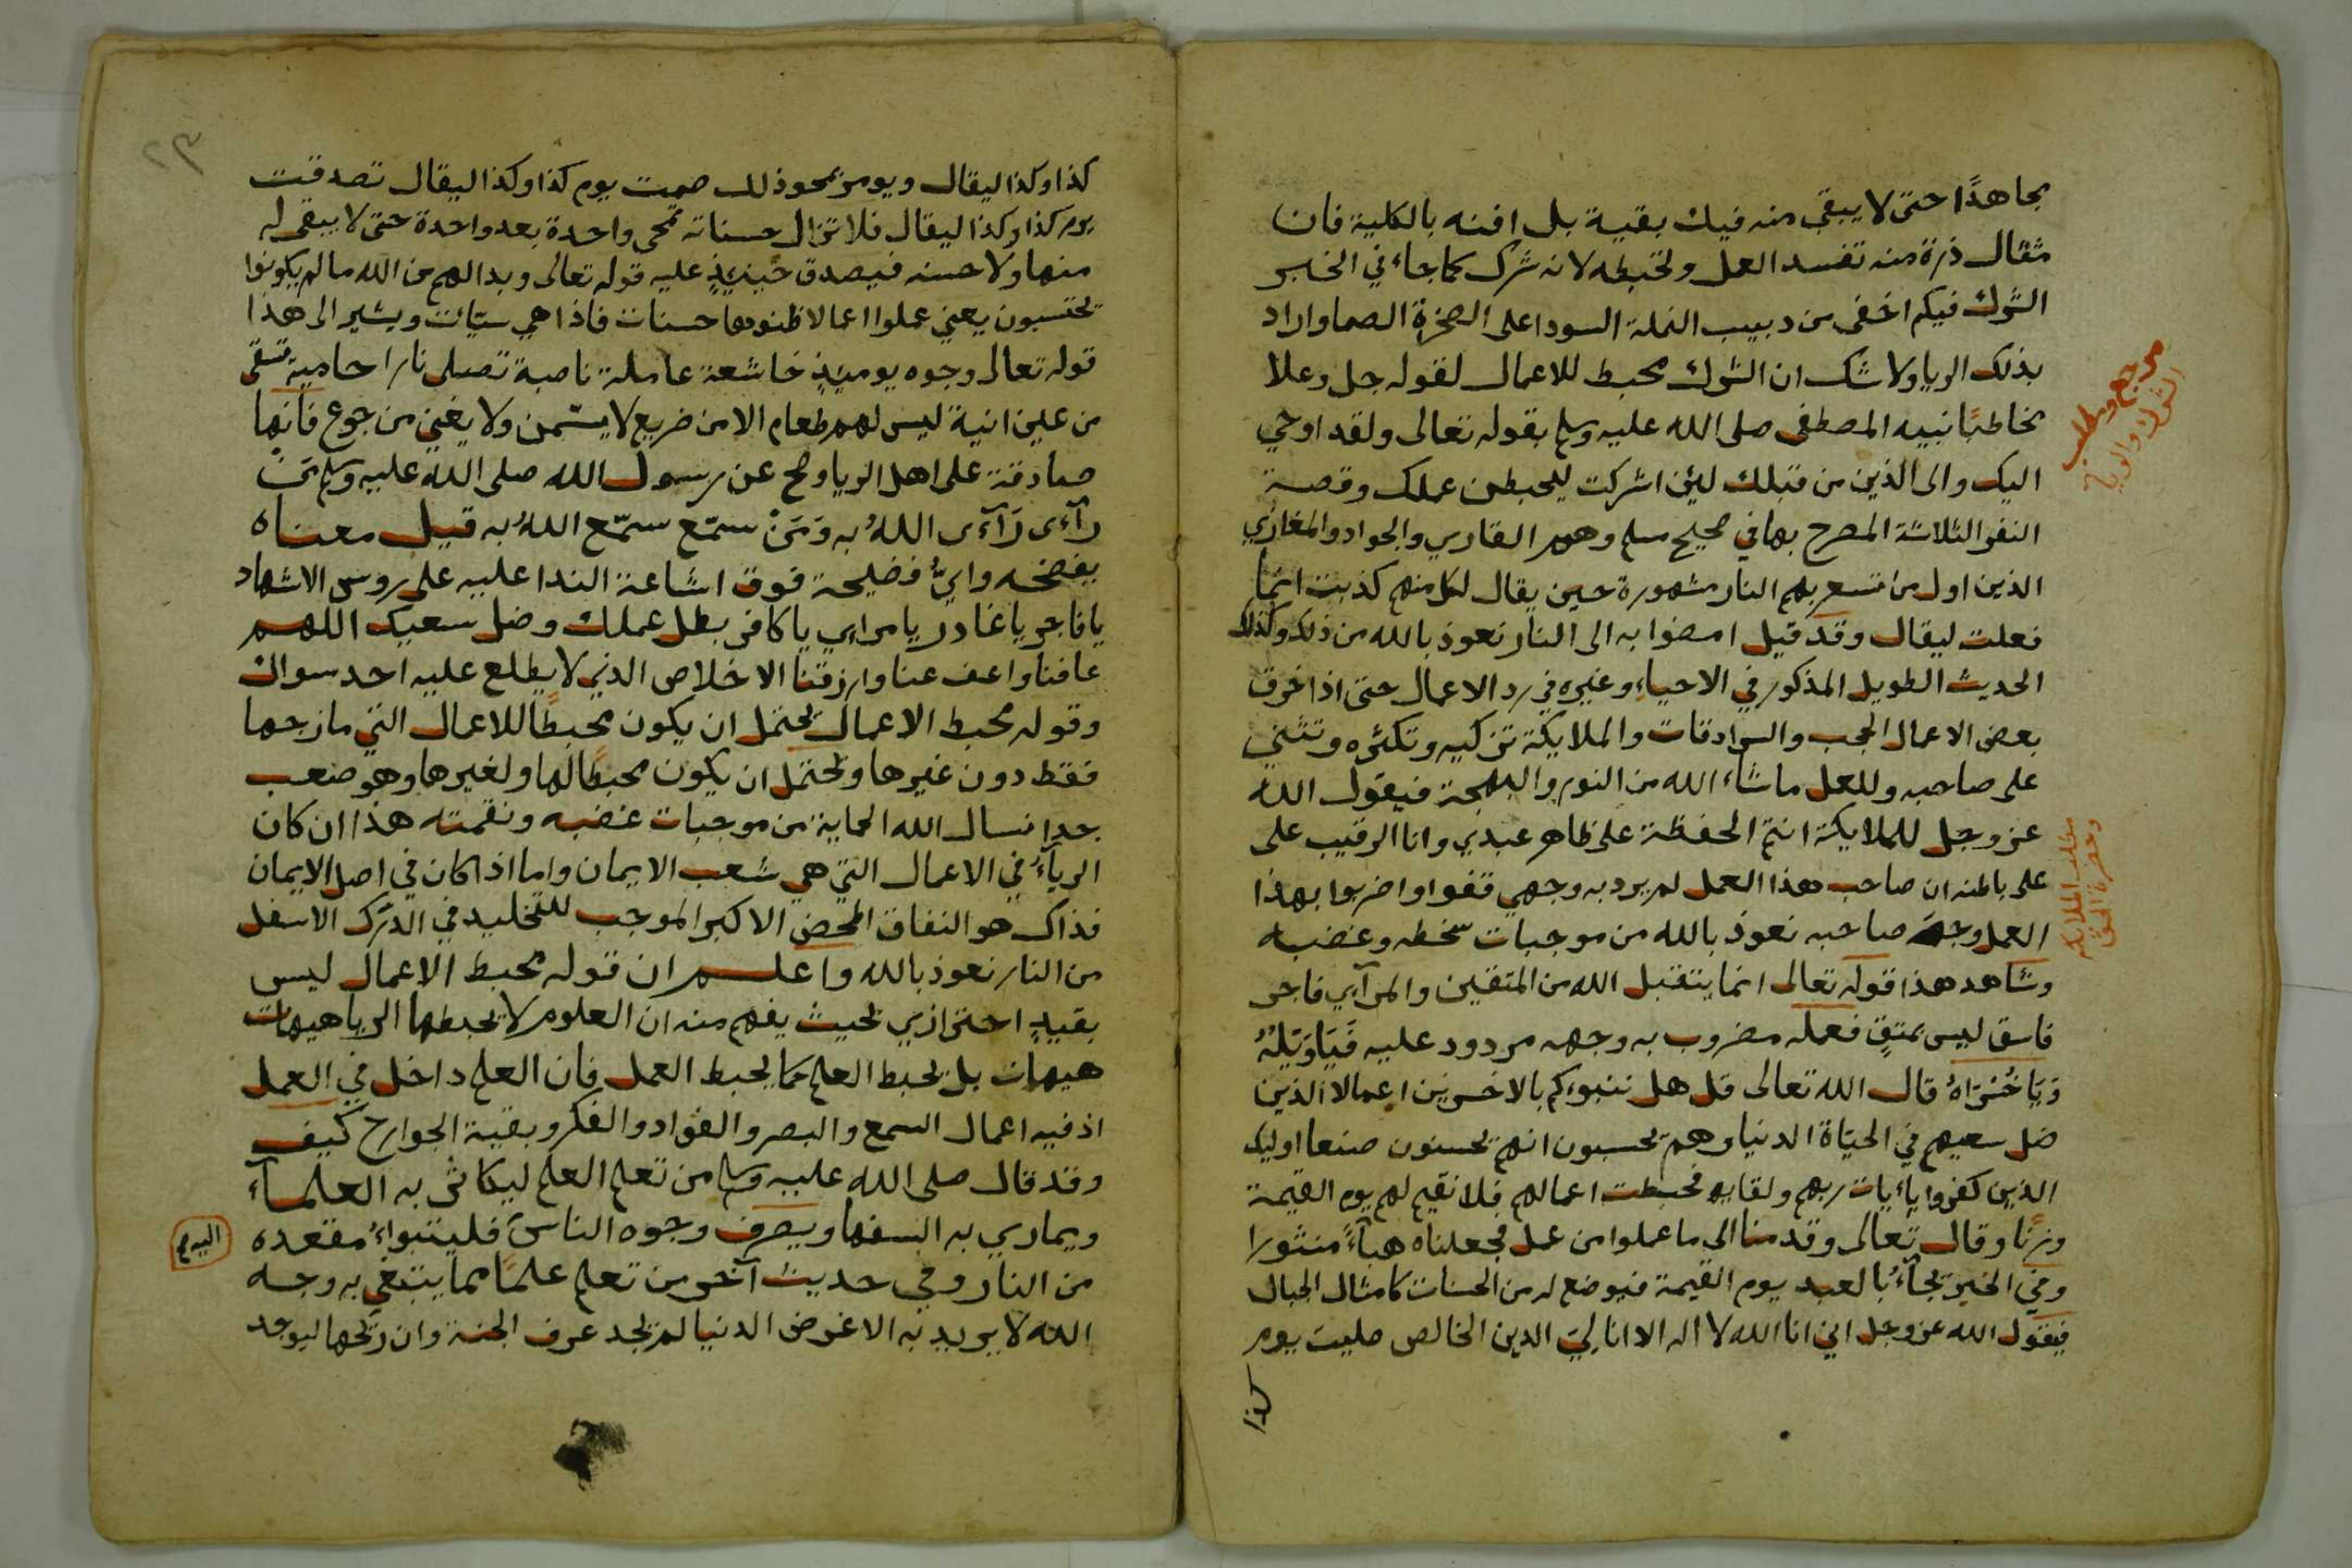 مجاهدًا حتى لا يبقى منه فيك بقية بل افنه بالكلية فان
مثقال ذرة منه تفسد العمل وتحبطه لانه شرك كما جاء في الخبر
الشرك فيكم اخفى من دبيب النملة السودا على الصخرة الصما واراد
بذلك الريا ولا شك ان الشرك محبط للاعمال لقوله جل وعلا
مخاطبًا نبيه المصطفى صلى الله عليه وسلم بقوله تعالى ولقد اوحي
اليك والى الذين من قبلك لئن اشركت ليحبطن عملك وقصة
النفر الثلاثة المصرح بها في صحيح مسلم وهم القاري والجواد والمغازي
الذين اول من تسعر بهم النار مشهورة حين يقال لكل منهم كذبت انما
فعلت ليقال وقد قيل امضوا به الى النار نعوذ بالله من ذلك وكذلك
الحديث الطويل المذكور في الاحياء وغيره في رد الاعمال حتى اذا خرق
بعض الاعمال الحجب والسرادقات والملايكة تزكيه وتكثره وتثني
على صاحبه وللعمل ما شاء الله من النور والبهجة فيقول الله
عز وجل للملايكة انتم الحفظة على ظاهر عبدي وانا الرقيب على
على باطنه ان صاحب هذا العمل لم يرد به وجهي قفوا واضربوا بهذا
العمل وجه صاحبه نعوذ بالله من موجبات سخطه وغضبه
وشاهد هذا قوله تعالى انما يتقبل الله من المتقين والمرآيي فاجر
فاسق ليس بمتقٍ فعمله مضروب به وجهه مردود عليه فَيَاوَيْلَهُ
وَيَاخُسْرَاهُ قال الله تعالى قل هل ننبؤكم بالاخسرين اعمالا الذين
ضل سعيهم في الحيٰاة الدنيا وهم يحسبون انهم يحسنون صنعا اوليك
الذين كفروا باٰيات ربهم ولقايه فحبطت اعمالهم فلا نقيم لهم يوم القيمة
وزنًا وقال تعالى وقدمنا الى ما عملوا من عمل فجعلناه هبآءً منثورا
وفي الخبر يجآءُ بالعبد يوم القيمة فيوضع له من الحسنات كامثال الجبال
فيقول الله عز وجل اني انا الله لا اله الا انا لي الدين الخالص صليت يوم
كذا
مطلب الملايكة
كذا وكذا ليقال ويوم نحو ذلك صمت يوم كذا وكذا ليقال تصدقت
يوم كذا وكذا ليقال فلا تزال حسناته تمحى واحدة بعد واحدة حتى لا يبقى له
منها ولا حسنه فيصدق حينئذٍ عليه قوله تعالى وبدا لهم من الله ما لم يكونوا
يحتسبون يعني عملوا اعمالا ظنوها حسنات فاذا هي سيٓات ويشير الى هذا
قوله تعالى وجوه يومئذٍ خاشعة عاملة ناصبة تصلى نارا حامية تسقى
من عين انية ليس لهم طعام الا من ضريع لا يسمن ولا يغني من جوع فانها
صادقة على اهل الريا وصح عن رسول الله صلى الله عليه وسلم مَنْ
رآءَى رَآءَى اللهُ به وَمَنْ سمّع سمّع اللهُ به قيل معناه
يفضحه وايُّ فضيحة فوق اشاعة الندا عليه على روس الاشهاد
يا فاجر يا غادر يا مرايي يا كافر بطل عملك وضل سعيك اللهم
عافنا واعف عنا وارزقنا الاخلاص الذي لا يطلع عليه احد سواك
وقوله محبط الاعمال يحتمل ان يكون محبطًا للاعمال التي مازجها
فقط دون غيرها ويحتمل ان يكون محبطًا لها ولغيرها وهو صعب
جدا نسال الله الحماية من موجبات غضبه ونقمته هذا ان كان
الريآءُ في الاعمال التي هي شعب الايمان واما اذا كان في اصل الايمان
فذاك هو النفاق المحض الاكبر الموجب للتخليد في الدرك الاسفل
من النار نعوذ بالله واعلم ان قوله محبط الاعمال ليس
بقيدٍ احترازي بحيث يفهم منه ان العلوم لا يحبطها الريا هيهات
هيهات بل يحبط العلم كما يحبط العمل فان العلم داخل في العمل
اذ فيه اعمال السمع والبصر والفؤاد والفكر وبقية الجوارح كيف
وقد قال صلى الله عليه وسلم من تعلم العلم ليكاثر به العلمآء
ويماري به السفها ويصرف وجوه الناس فليتبواءُ مقعده
من النار وفي حديث آخر من تعلم علمًا مما يبتغي به وجه
الله لا يريد به الا غرض الدنيا لم يجد عرف الجنة وان ريحها ليوجد